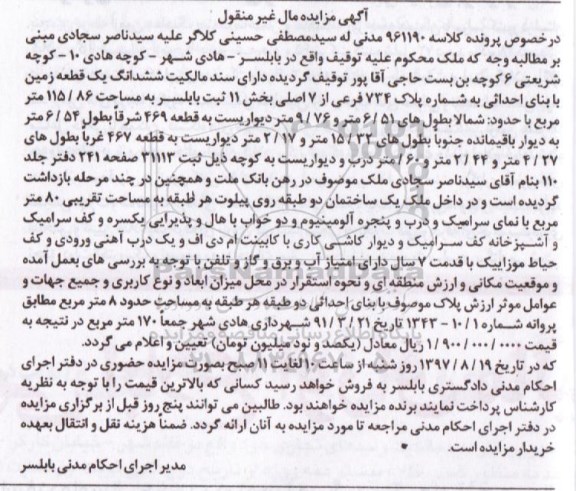 آگهی مزایده مال غیر منقول
در خصوص پرونده کلاسه ۹۶۱۱۹۰ مدنی له سید مصطفی حسینی کلاگر علیه سیدناصر سجادی مبنی
بر مطالبه وجه که ملک محکوم علیه توقیف واقع در بابلسر - هادی شهر - کوچه هادی ۱۰ - کوچه
شریعتی ۶ کوچه بن بست حاجی آقا پور توقیف گردیده دارای سند مالکیت ششدانگ یک قطعه زمین
با بنای احداثی به شماره پلاک ۷۳۴ فرعی از ۷ اصلی بخش ۱۱ ثبت بابلسر به مساحت ۸۶ / ۱۱۵ متر
مربع با حدود: شمالا بطول های ۵۱ / ۶ متر و ۷۶ / ۹ متر دیواریست به قطعه ۴۶۹ شرقا بطول ۵۴ / ۶ متر
به دیوار باقیمانده جنوبا بطول های / ۱۵ متر و ۱۷ / ۲ متر دیواریست به قطعه ۴۶۷ غربا بطول های
۲۷ / ۴ متر و ۴۴ / ۲ متر و ۶۰ / متر درب و دیواریست به کوچه ذیل ثبت ۳۱۱۱۳ صفحه ۲۴۱ دفتر جلد
۱۱۰ بنام آقای سیدناصر سجادی ملک موصوف در رهن بانک ملت و همچنین در چند مرحله بازداشت
گردیده است و در داخل ملک یک ساختمان دو طبقه روی پیلوت هر طبقه به مساحت تقریبی ۸۰ متر
مربع با نمای سرامیک و درب و پنجره آلومینیوم و دو خواب با هال و پذیرایی یکسره و کف سرامیک
و آشپزخانه کف سرامیک و دیوار کاشی کاری با کابینت ام دی اف و یک درب آهنی ورودی و کف
حیاط موزاییک با قدمت ۷ سال دارای امتیاز آب و برق و گاز و تلفن با توجه به بررسی های بعمل آمده
و موقعیت مکانی و ارزش منطقه ای و نحوه استقرار در محل میزان ابعاد و نوع کاربری و جمیع جهات و
عوامل موثر ارزش پلاک موصوف با بنای احداثی دو طبقه هر طبقه به مساحت حدود ۸ متر مربع مطابق
پروانه شماره ۱ / ۱۰ - ۱۳۴۳ تاریخ ۲۱ / ۳ / ۹۱ شهرداری هادی شهر جمعا ۱۷۰ متر مربع در نتیجه به
قیمت ۱/۹۰۰/۰۰۰/۰۰۰۰ ریال معادل (یکصد و نود میلیون تومان) تعیین و اعلام می گردد.
که در تاریخ ۱۳۹۷/۸/۱۹ روز شنبه از ساعت ۱۰ لغایت ۱۱ صبح بصورت مزایده حضوری در دفتر اجرای
احکام مدنی دادگستری بابلسر به فروش خواهد رسید کسانی که بالاترین قیمت را با توجه به نظریه
کارشناس پرداخت نمایند برنده مزایده خواهند بود. طالبین می توانند پنج روز قبل از برگزاری مزایده
در دفتر اجرای احکام مدنی مراجعه تا مورد مزایده به آنان ارائه گردد. ضمنا هزینه نقل و انتقال بعهده
خریدار مزایده است.
مدیر اجرای احکام مدنی بابلسر
ParsNamadData